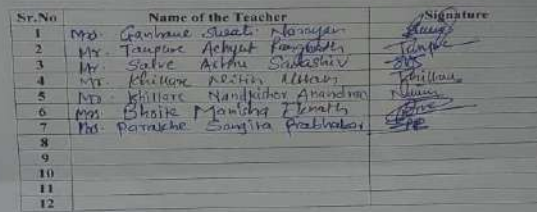 Sr.No Name of the Teacher Signature
1 Mrs. Ganhane Swati Narayan
2 Mr. Tanpure Achyut Tanpure
3 Mr. Salve Sadashiv
4 Mr. Khillare Nitin Khillare
5 Mr. Khillare Nandkishor Anandrao
6 Mrs. Bhoite Manisha Eknath
7 Mrs. Parakhe Sangita Prabhakar
8
9
10
11
12